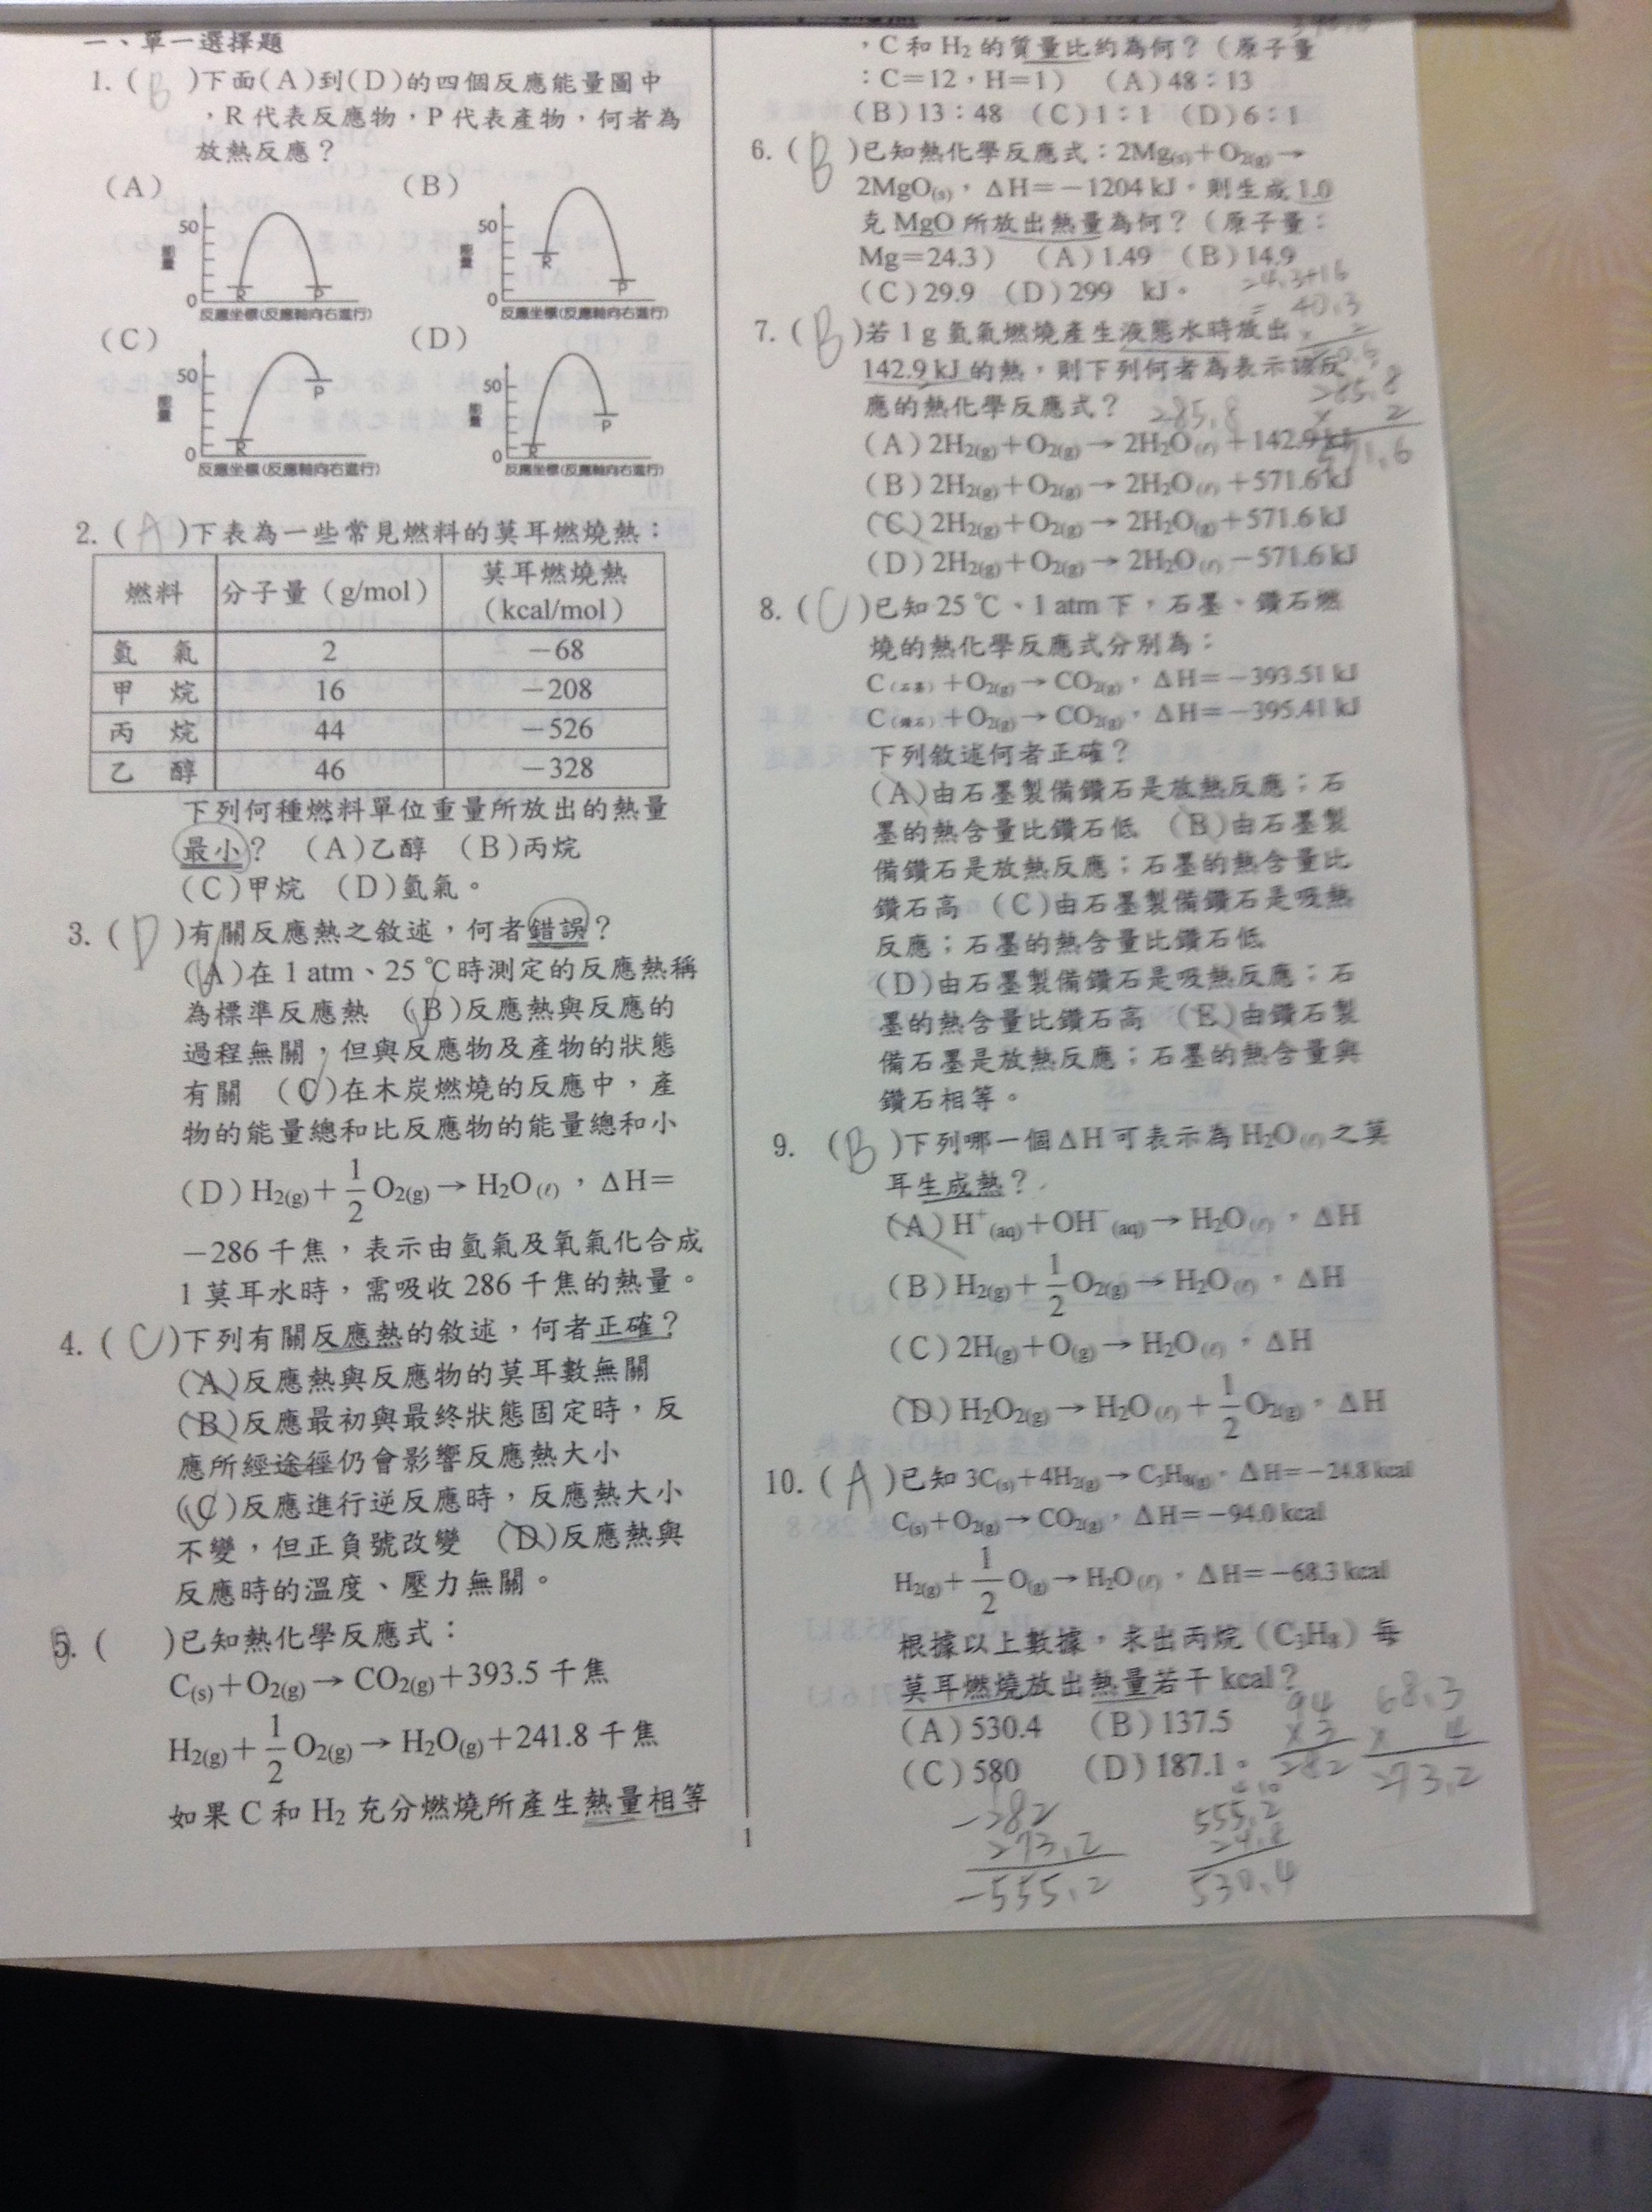 一、單一選擇題
1. ( B )下面(A)到(D)的四個反應能量圖中
，R代表反應物，P代表產物，何者為
放熱反應？
(A) (B)
50 能量 0 R P
反應坐標(反應軸向右進行)
50 能量 0 R P
反應坐標(反應軸向右進行)
(C) (D)
50 能量 0 R P
反應坐標(反應軸向右進行)
50 能量 0 R P
反應坐標(反應軸向右進行)
2. ( A )下表為一些常見燃料的莫耳燃燒熱：
燃料 分子量（g/mol） 莫耳燃燒熱（kcal/mol）
氫氣 2 －68
甲烷 16 －208
丙烷 44 －526
乙醇 46 －328
下列何種燃料單位重量所放出的熱量
最小？ (A)乙醇 (B)丙烷
(C)甲烷 (D)氫氣。
3. ( D )有關反應熱之敘述，何者錯誤？
(A)在1 atm、25 ℃時測定的反應熱稱
為標準反應熱 (B)反應熱與反應的
過程無關，但與反應物及產物的狀態
有關 (C)在木炭燃燒的反應中，產
物的能量總和比反應物的能量總和小
(D) H2(g)＋1/2 O2(g)→ H2O(ℓ)，ΔH＝
－286 千焦，表示由氫氣及氧氣化合成
1 莫耳水時，需吸收 286 千焦的熱量。
4. ( C )下列有關反應熱的敘述，何者正確？
(A)反應熱與反應物的莫耳數無關
(B)反應最初與最終狀態固定時，反
應所經途徑仍會影響反應熱大小
(C)反應進行逆反應時，反應熱大小
不變，但正負號改變 (D)反應熱與
反應時的溫度、壓力無關。
5. ( )已知熱化學反應式：
C(s)＋O2(g)→ CO2(g)＋393.5 千焦
H2(g)＋1/2 O2(g)→ H2O(g)＋241.8 千焦
如果 C 和 H2 充分燃燒所產生熱量相等
1
，C 和 H2 的質量比約為何？（原子量
：C＝12，H＝1） (A) 48：13
(B) 13：48 (C) 1：1 (D) 6：1
6. ( B )已知熱化學反應式：2Mg(s)＋O2(g)→
2MgO(s)，ΔH＝－1204 kJ。則生成 1.0
克 MgO 所放出熱量為何？（原子量：
Mg＝24.3） (A) 1.49 (B) 14.9
(C) 29.9 (D) 299 kJ。
24.3+16
= 40.3
7. ( B )若 1 g 氫氣燃燒產生液態水時放出
142.9 kJ 的熱，則下列何者為表示該反
應的熱化學反應式？ 285.8
285.8
× 2
571.6
(A) 2H2(g)＋O2(g)→ 2H2O(ℓ)＋142.9 kJ
(B) 2H2(g)＋O2(g)→ 2H2O(ℓ)＋571.6 kJ
(C) 2H2(g)＋O2(g)→ 2H2O(g)＋571.6 kJ
(D) 2H2(g)＋O2(g)→ 2H2O(ℓ)－571.6 kJ
8. ( C )已知 25 ℃、1 atm 下，石墨、鑽石燃
燒的熱化學反應式分別為：
C(石墨)＋O2(g)→ CO2(g)，ΔH＝－393.51 kJ
C(鑽石)＋O2(g)→ CO2(g)，ΔH＝－395.41 kJ
下列敘述何者正確？
(A)由石墨製備鑽石是放熱反應；石
墨的熱含量比鑽石低 (B)由石墨製
備鑽石是放熱反應；石墨的熱含量比
鑽石高 (C)由石墨製備鑽石是吸熱
反應；石墨的熱含量比鑽石低
(D)由石墨製備鑽石是吸熱反應；石
墨的熱含量比鑽石高 (E)由鑽石製
備石墨是放熱反應；石墨的熱含量與
鑽石相等。
9. ( B )下列哪一個 ΔH 可表示為 H2O(ℓ)之莫
耳生成熱？
(A) H⁺(aq)＋OH⁻(aq)→ H2O(ℓ)，ΔH
(B) H2(g)＋1/2 O2(g)→ H2O(ℓ)，ΔH
(C) 2H(g)＋O(g)→ H2O(ℓ)，ΔH
(D) H2O2(g)→ H2O(ℓ)＋1/2 O2(g)，ΔH
10. ( A )已知 3C(s)＋4H2(g)→ C3H8(g)，ΔH＝－24.8 kcal
C(s)＋O2(g)→ CO2(g)，ΔH＝－94.0 kcal
H2(g)＋1/2 O(g)→ H2O(ℓ)，ΔH＝－68.3 kcal
根據以上數據，求出丙烷（C3H8）每
莫耳燃燒放出熱量若干 kcal？
(A) 530.4 (B) 137.5
(C) 580 (D) 187.1。
94
×3
282
68.3
× 4
273.2
-282
273.2
-555.2
555.2
24.8
530.4